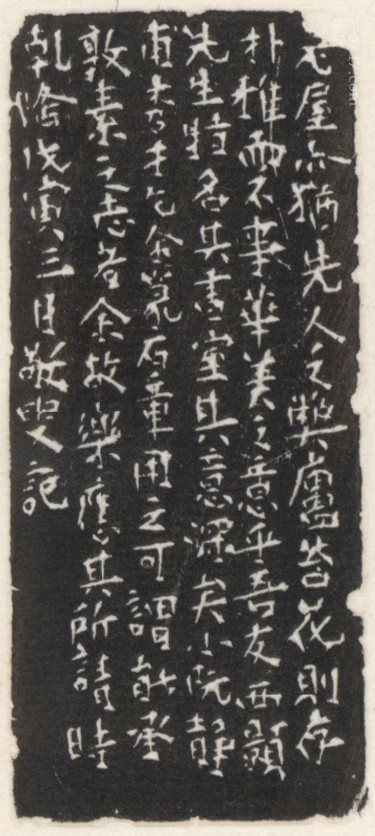 老屋亦猶先人之弊廬苔花則存
朴雅而不事華美之意乎吾友西顥
先生特名其書室其意深矣小阮靜
甫大乃手乞余篆石章用之可謂能承
敦素之志者余故樂應其所請時
乾隆戊寅三月敬叟記